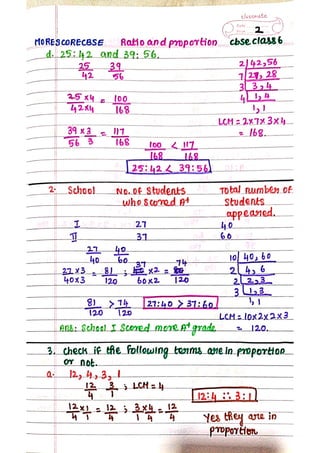 classmate
2
MORESCORECBSE Ratio and proportion cbse class 6
d. 25:42 and 39:56.
25/42 39/56
25×4/42×4 = 100/168
39×3/56 3 = 117/168
100/168 < 117/168
25:42 < 39:56
2 | 42,56
7 | 21, 28
3 | 3, 4
4 | 1, 4
1, 1
LCM = 2×7×3×4
= 168.
2. School No. of Students who Scored A¹ Total number of Students appeared.
I 27 40
II 37 60
27/40 40/60
27×3/40×3 = 81/120 ; 37/60×2 = 74/120
81/120 > 74/120 27:40 > 37:60
10 | 40, 60
2 | 4, 6
2 | 2, 3
3 | 1, 3
1, 1
LCM = 10×2×2×3
= 120.
Ans: School I Scored more A¹ grade
3. Check if the following terms are in proportion
or not.
a. 12, 4, 3, 1
12/4 3/1 ; LCM = 4
12×1/4 1 = 12/4 ; 3×4/1 4 = 12/4
12:4 :: 3:1
Yes they are in
proportion